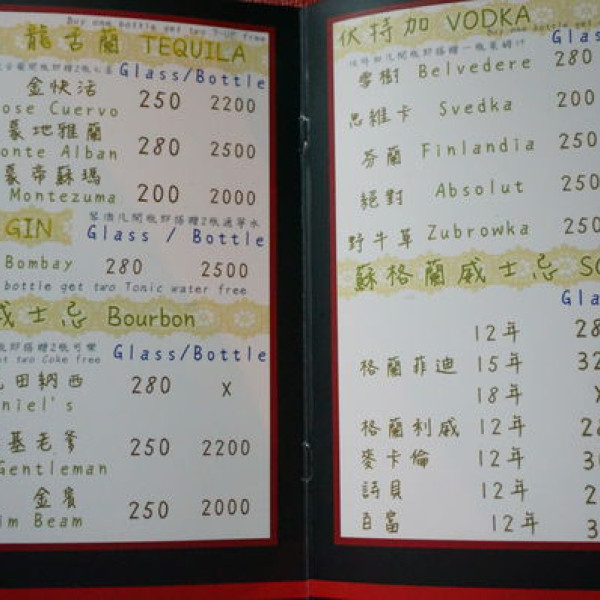 Buy one bottle get two 7-UP free
龍舌蘭 TEQUILA
Glass/Bottle
金快活
ose Cuervo 250 2200
豪地雅蘭
onte Alban 280 2500
豪帝蘇瑪
Montezuma 200 2000
琴酒凡開瓶即搭贈2瓶通寧水
GIN Glass / Bottle
Bombay 280 2500
bottle get two Tonic water free
威士忌 Bourbon
開瓶即搭贈2瓶可樂
et two Coke free Glass/Bottle
田納西
niel's 280 X
基老爹
Gentleman 250 2200
金賓
im Beam 250 2000
伏特加 VODKA
Buy one bottle get
Glas
雪樹 Belvedere 280
思維卡 Svedka 200
芬蘭 Finlandia 250
絕對 Absolut 250
野牛草 Zubrowka 250
蘇格蘭威士忌 SC
Gla
12年 28
格蘭菲迪 15年 32
18年
格蘭利威 12年
麥卡倫 12年
詩貝 12年
百富 12年